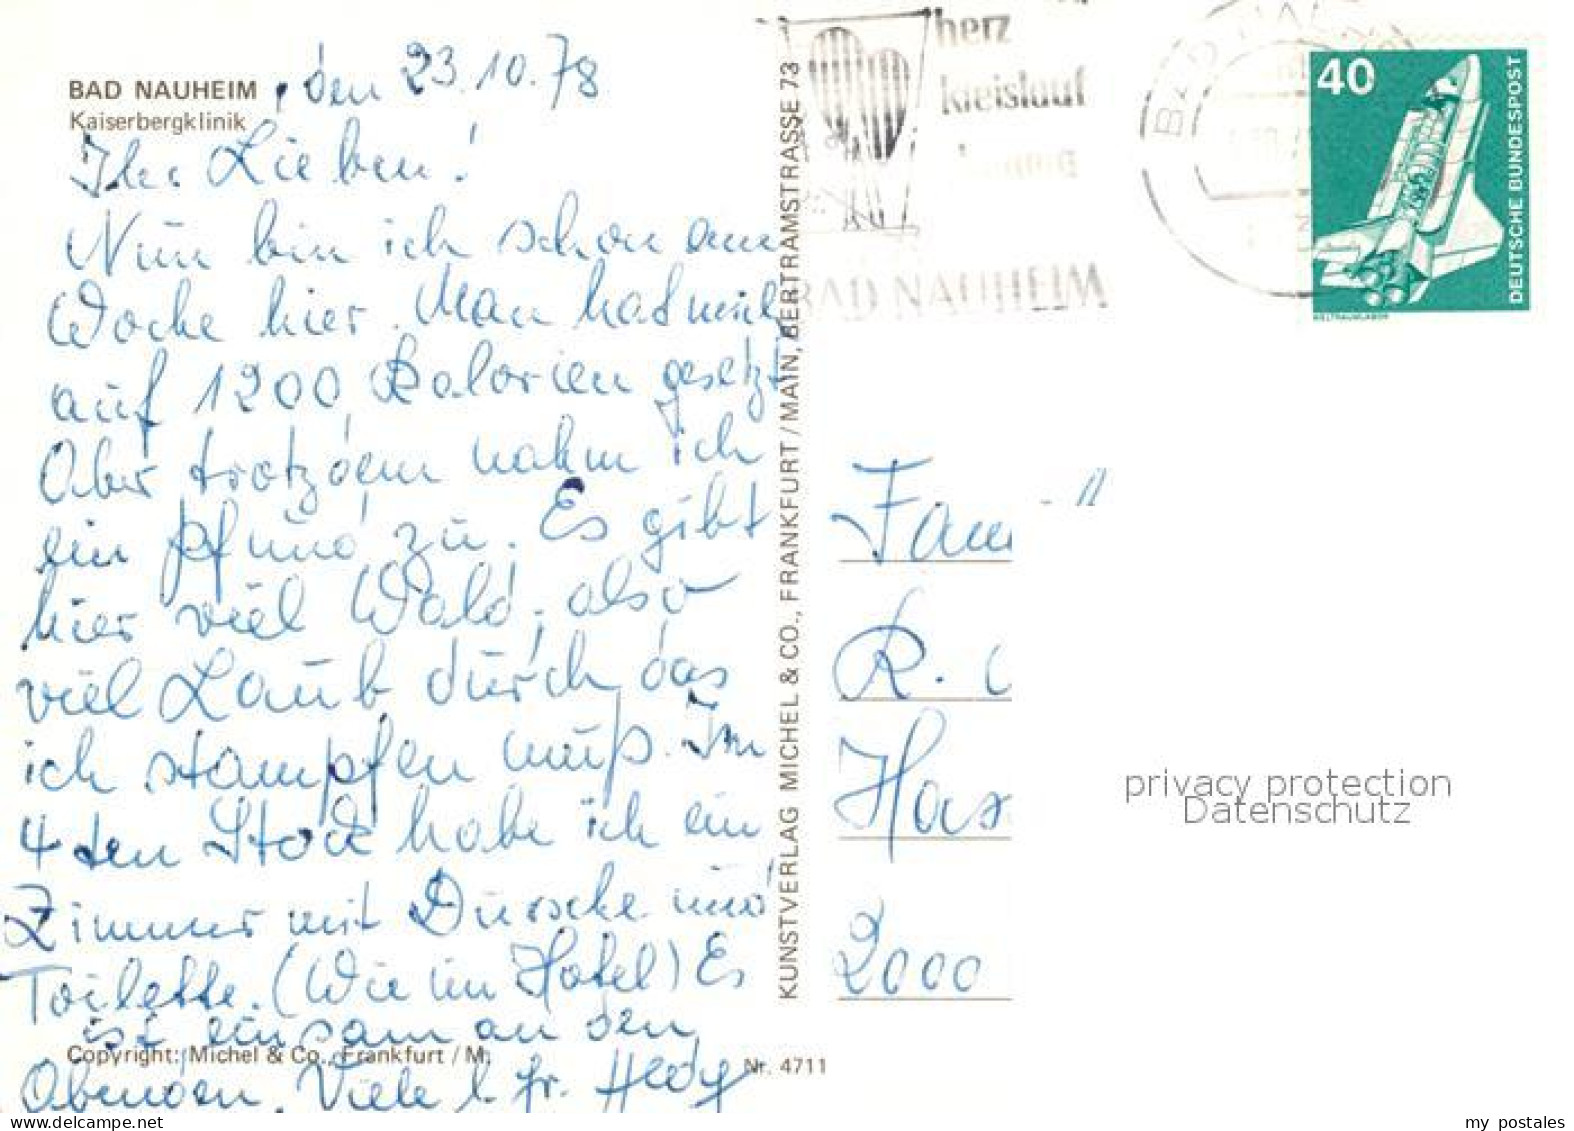 BAD NAUHEIM, den 23.10.78
Kaiserbergklinik
Ihr Lieben!
Nun bin ich schon eine
Woche hier. Man hat mich
auf 1200 Kalorien gesetzt
Aber trotzdem nahm ich
ein Pfund zu. Es gibt
hier viel Wald, also
viel Laub durch das
ich stampfen muß. Im
4 ten Stock habe ich ein
Zimmer mit Dusche und
Toilette. (Wie im Hotel) Es
ist einsam an den
Copyright: Michel & Co., Frankfurt/M.
Abenden. Viele l. Gr. Hedy
Nr. 4711
KUNSTVERLAG MICHEL & CO., FRANKFURT/MAIN, BERTRAMSTRASSE 73
herz
kreislauf
BAD NAUHEIM
40
DEUTSCHE BUNDESPOST
WELTRAUMLABOR
Fam
R.
Has
2000
privacy protection
Datenschutz
www.delcampe.net
my_postales